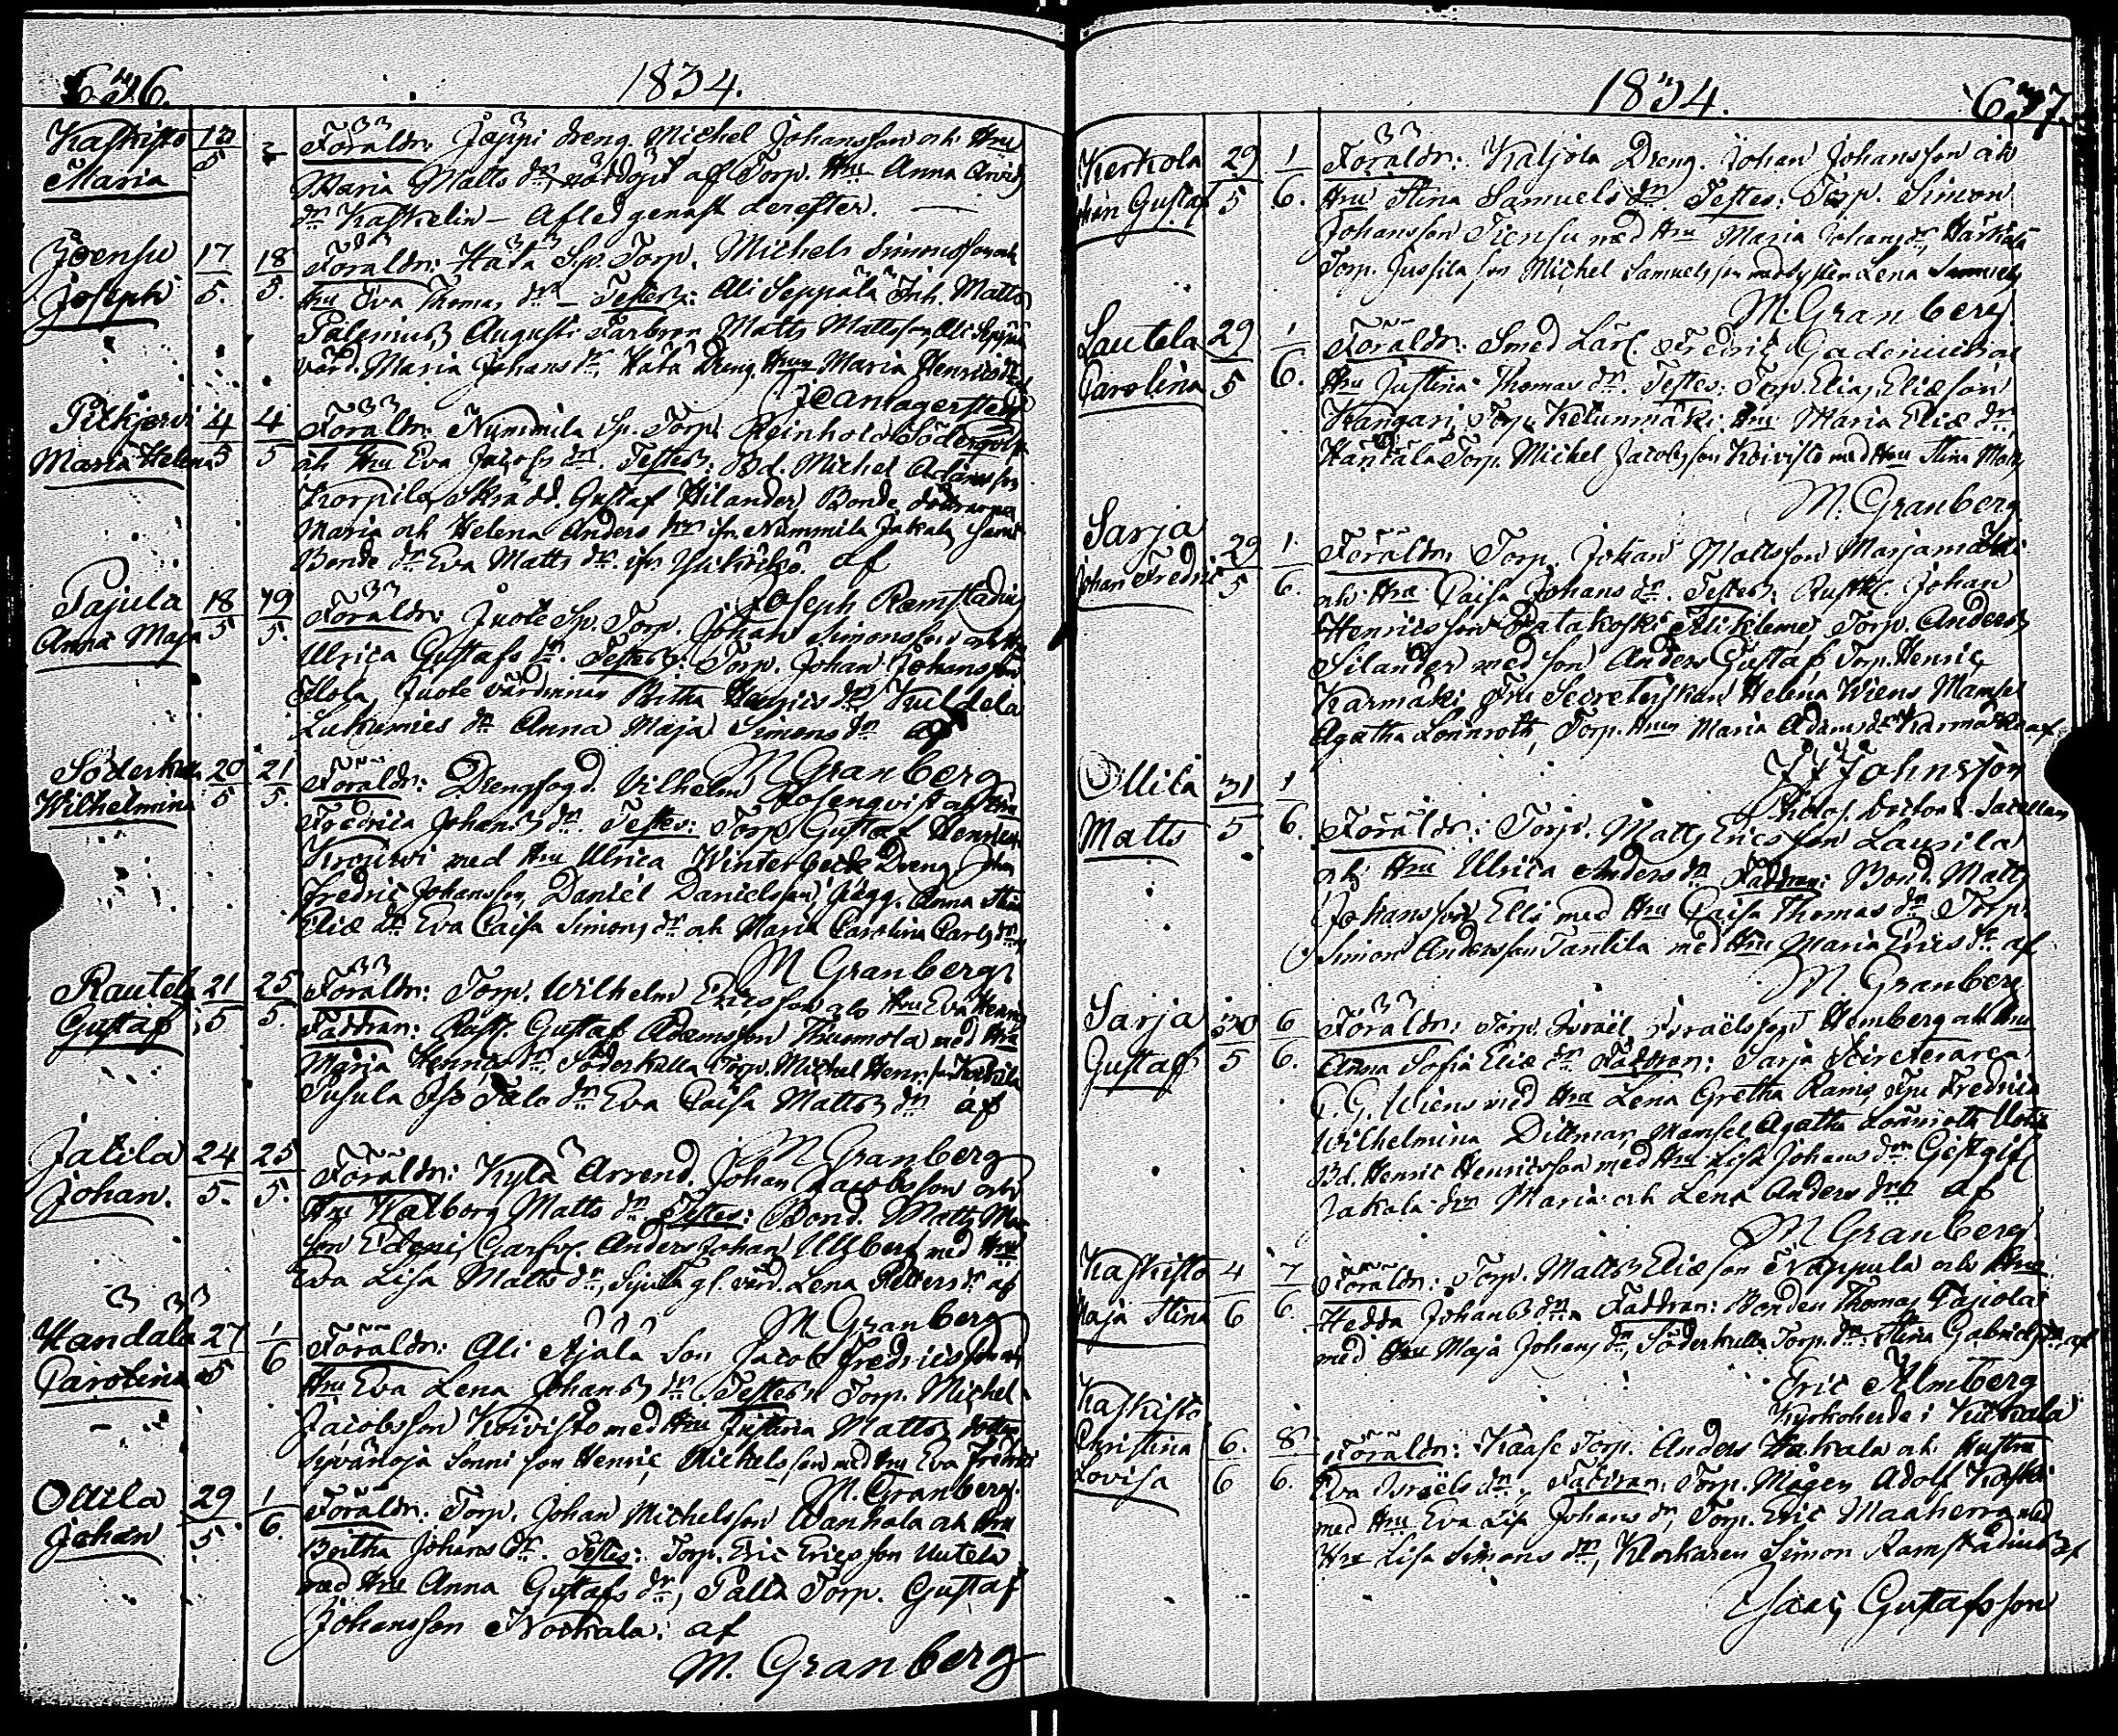 636.
1834.
Kaskisto 13
Maria 5
Föräldr: Jäppi dreng Michel Johansson och Hru
Maria Matts dr, nöddöpt af Torp. Hru Anna Arvids
dr Kaskelin – Afled genast derefter. —
Joensu 17 18
Joseph 5. 5.
Föräldr: Hata Sp. Torp. Michel Simonsson och
Hru Eva Thomas dr – Testes: Ali Seppälä Inh. Matts
Palenius, Augusti Farbror Matts Mattsson, Ali Seppälä
värd. Maria Johans dr, Hata Dreng Hrun Maria Henrics dr
Jean Lagerstedt
Pitkjervi 4 4
Maria Helena 5 5
Föräldr: Nummila Sp. Torp. Reinhold Söderqvist
och Hru Eva Jacobs dr. Testes: Bd. Michel Adamsson
Korpila, Skradd. Gustaf Hilander, Bonde döttrarna
Maria och Helena Anders drr ifr. Nummila Jakala samt
Bonde dr Eva Matts dr ifr af
Joseph Ramstadius
Pajula 18 19
Anna Maja 5 5.
Föräldr: Juote Sp. Torp. Johan Simonsson och Hru
Ulrica Gustafs dr. Testes: Torp. Johan Johansson
Ilola, Juote värdinnan Britha Henrics dr, Kuldela
Lukumies dr Anna Maja Simons dr af
M Granberg
Söderkulla 20 21
Wilhelmina 5 5.
Föräldr: Drengfogd. Vilhelm Rosenqvist och Hru
Fredrica Johans dr. Testes: Torp. Gustaf Henricsson
med Hru Ulrica Winterbeck Dreng. Johan
Fredric Johansson, Daniel Danielsson, Pigg. Anna Stina
Eliæ dr Eva Caisa Simons dr och Maria Carolina Carls dr
M Granberg
Rautela 21 25
Gustaf 5 5.
Föräldr: Torp. Wilhelm Ericsson och Hru Eva Henrics
Faddran: Rustf. Gustaf Adamsson Thummola med Hru
Maria Henrics dr Söderkulla Torp. Michel Henr. son Kackila
Pusula Iso Talo dr Eva Caisa Matts dr af
M Granberg
Jatila 24 25
Johan. 5. 5.
Föräldr: Kylä Arrend. Johan Jacobsson och
Hru Walborg Matts dr Testes: Bond. Matts Mats
son Garfv. Anders Johan Ullberg med Hru
Eva Lisa Matts dr, gl. värd. Lena Petters dr af
M Granberg
Handala 27 1
Carolina 5 6
Föräldr: Ali Äjälä Son Jacob Fredricsson och
Hru Eva Lena Johans dr. Testes: Torp. Michel
Jacobsson Koivisto med Hru Justina Matts dotter
Syvänoja Sonni son Henric Michelsson med Hru Eva Fredrics
M. Granberg.
Ollila 29 1
Johan 5. 6.
Föräldr: Torp. Johan Michelsson Wanhala och Hru
Britha Johans dr. Testes: Torp. Eric Ericsson Uutela
med Hru Anna Gustafs dr, Palla Torp. Gustaf
Johansson Norkala. af
M. Granberg
1834.
637.
Kerkola 29 1
Johan Gustaf 5 6.
Föräldr: Kaljola Dreng. Johan Johansson och
Hru Stina Samuels dr. Testes: Torp. Simon
Johansson Tiensu med Hru Maria Johans dr, Härkälä
Torp. Jussila son Michel Samuelsson med syster Lena Samuels
M. Granberg.
Lautela 29 1
Carolina 5 6.
Föräldr: Smed Lärl. Fredric Gadenius och
Hru Justina Thomas dr. Testes: Torp. Elias Eliæson
Kangari, Torp. Ketunmäki Hru Maria Eliæ dr
Torp. Michel Jacobsson Koivisto med Hru Stina Matts
M. Granberg.
Sarja 29 1.
Johan Fredric 5 6.
Föräldr: Torp. Johan Mattsson Marjamäki
och Hru Caisa Johans dr. Testes: Rusth. Johan
Henricsson Patakoski Torp. Anders
Silander med son Anders Gustaf Torp. Henric
Karmäki Fru Secreterskan Helena Wiens Mamsel
Agatha Lönnroth, Torp. Hrun Maria Adams dr Karmäki af
J J Johnsson
Philos. Doctor & Sacellan
Ollila 31 1
Matts 5 6.
Föräldr: Torp. Matts Ericsson Lausila
och Hru Ulrica Anders dr Faddran: Bond. Matts
Johansson Elis med Hru Caisa Thomas dr Torp.
Simon Andersson Tantila med Hru Maria Erics dr af
M. Granberg
Sarja 30 6
Gustaf 5 6.
Föräldr: Torp. Israël Israëlsson Hemberg och Hru
Anna Sofia Eliæ dr Faddran: Sarja Secreteraren
C. G. Wiens med Hru Lena Gretha Rams, Fru Fredrica
Wilhelmina Dittmar, Mamsel Agatha Lönnroth
Bd. Henric Henricsson med Hru Lisa Johans dr. Gästgif.
Jakala drr Maria och Lena Anders drr af
M Granberg
Kaskisto 4 7
Maja Stina 6 6.
Föräldr: Torp. Matts Eliæson Nappula och Hru
Hedda Johans dr. Faddran: Bonden Thomas Tajiola
med Hru Maja Johans dr, Söderkulla Torp. dr. Stina Gabriels dr af
Eric Almberg
Kyrkoherde i Kiikala
Kaskisto
Christina 6. 8
Lovisa 6 6.
Föräldr: Torp. Anders Hakala och Hustru
Eva Israëls dr, Faddran: Torp. Mågen Adolf Koski
med Hru Eva Lisa Johans dr, Torp. Eric Maaherra med
Hru Lisa Simons dr, Klockaren Simon Ramstadius af
Isaac Gustafsson